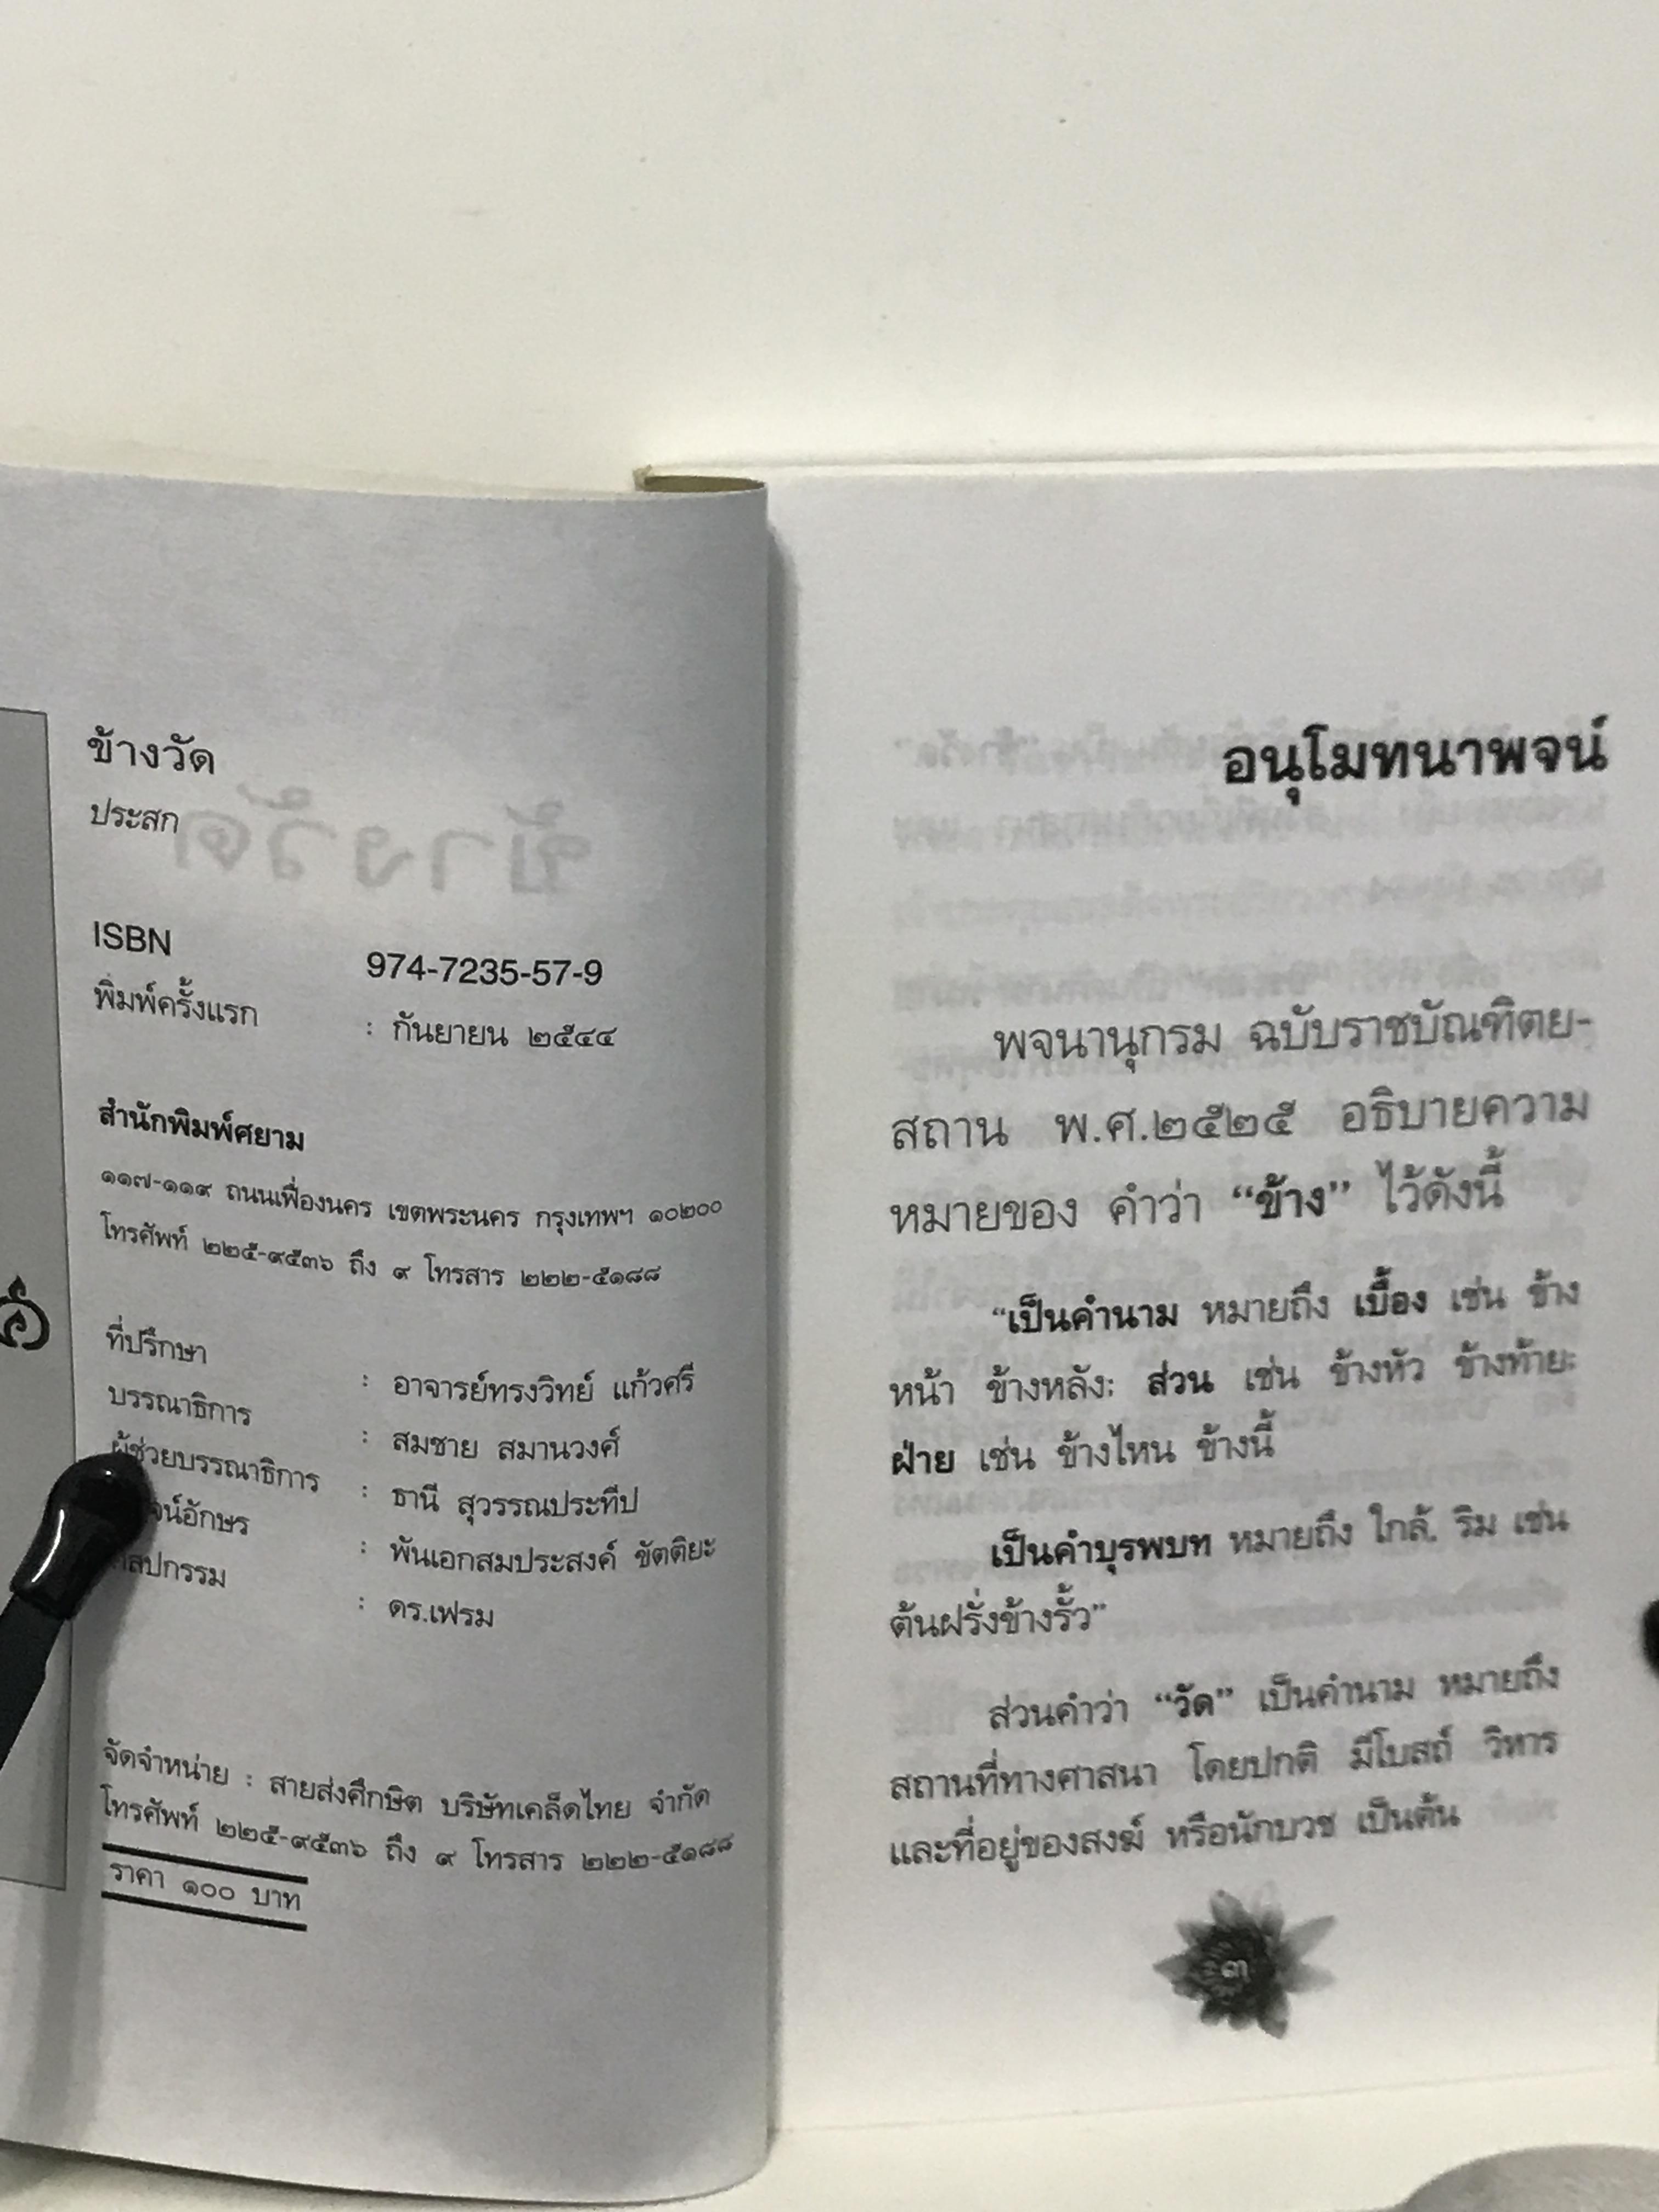 ข้างวัด
ประสก
ISBN 974-7235-57-9
พิมพ์ครั้งแรก : กันยายน ๒๕๔๔
สำนักพิมพ์ศยาม
๑๑๗-๑๑๙ ถนนเฟื่องนคร เขตพระนคร กรุงเทพฯ ๑๐๒๐๐
โทรศัพท์ ๒๒๕-๙๕๓๖ ถึง ๙ โทรสาร ๒๒๒-๕๑๘๘
ที่ปรึกษา : อาจารย์ทรงวิทย์ แก้วศรี
บรรณาธิการ : สมชาย สมานวงศ์
ผู้ช่วยบรรณาธิการ : ธานี สุวรรณประทีป
จน์อักษร : พันเอกสมประสงค์ ขัตติยะ
ศิลปกรรม : ดร.เฟรม
จัดจำหน่าย : สายส่งศึกษิต บริษัทเคล็ดไทย จำกัด
โทรศัพท์ ๒๒๕-๙๕๓๖ ถึง ๙ โทรสาร ๒๒๒-๕๑๘๘
ราคา ๑๐๐ บาท
อนุโมทนาพจน์
พจนานุกรม ฉบับราชบัณฑิตย-
สถาน พ.ศ.๒๕๒๕ อธิบายความ
หมายของ คำว่า “ข้าง” ไว้ดังนี้
“เป็นคำนาม หมายถึง เบื้อง เช่น ข้าง
หน้า ข้างหลัง; ส่วน เช่น ข้างหัว ข้างท้าย;
ฝ่าย เช่น ข้างไหน ข้างนี้
เป็นคำบุรพบท หมายถึง ใกล้, ริม เช่น
ต้นฝรั่งข้างรั้ว”
ส่วนคำว่า “วัด” เป็นคำนาม หมายถึง
สถานที่ทางศาสนา โดยปกติ มีโบสถ์ วิหาร
และที่อยู่ของสงฆ์ หรือนักบวช เป็นต้น
๓